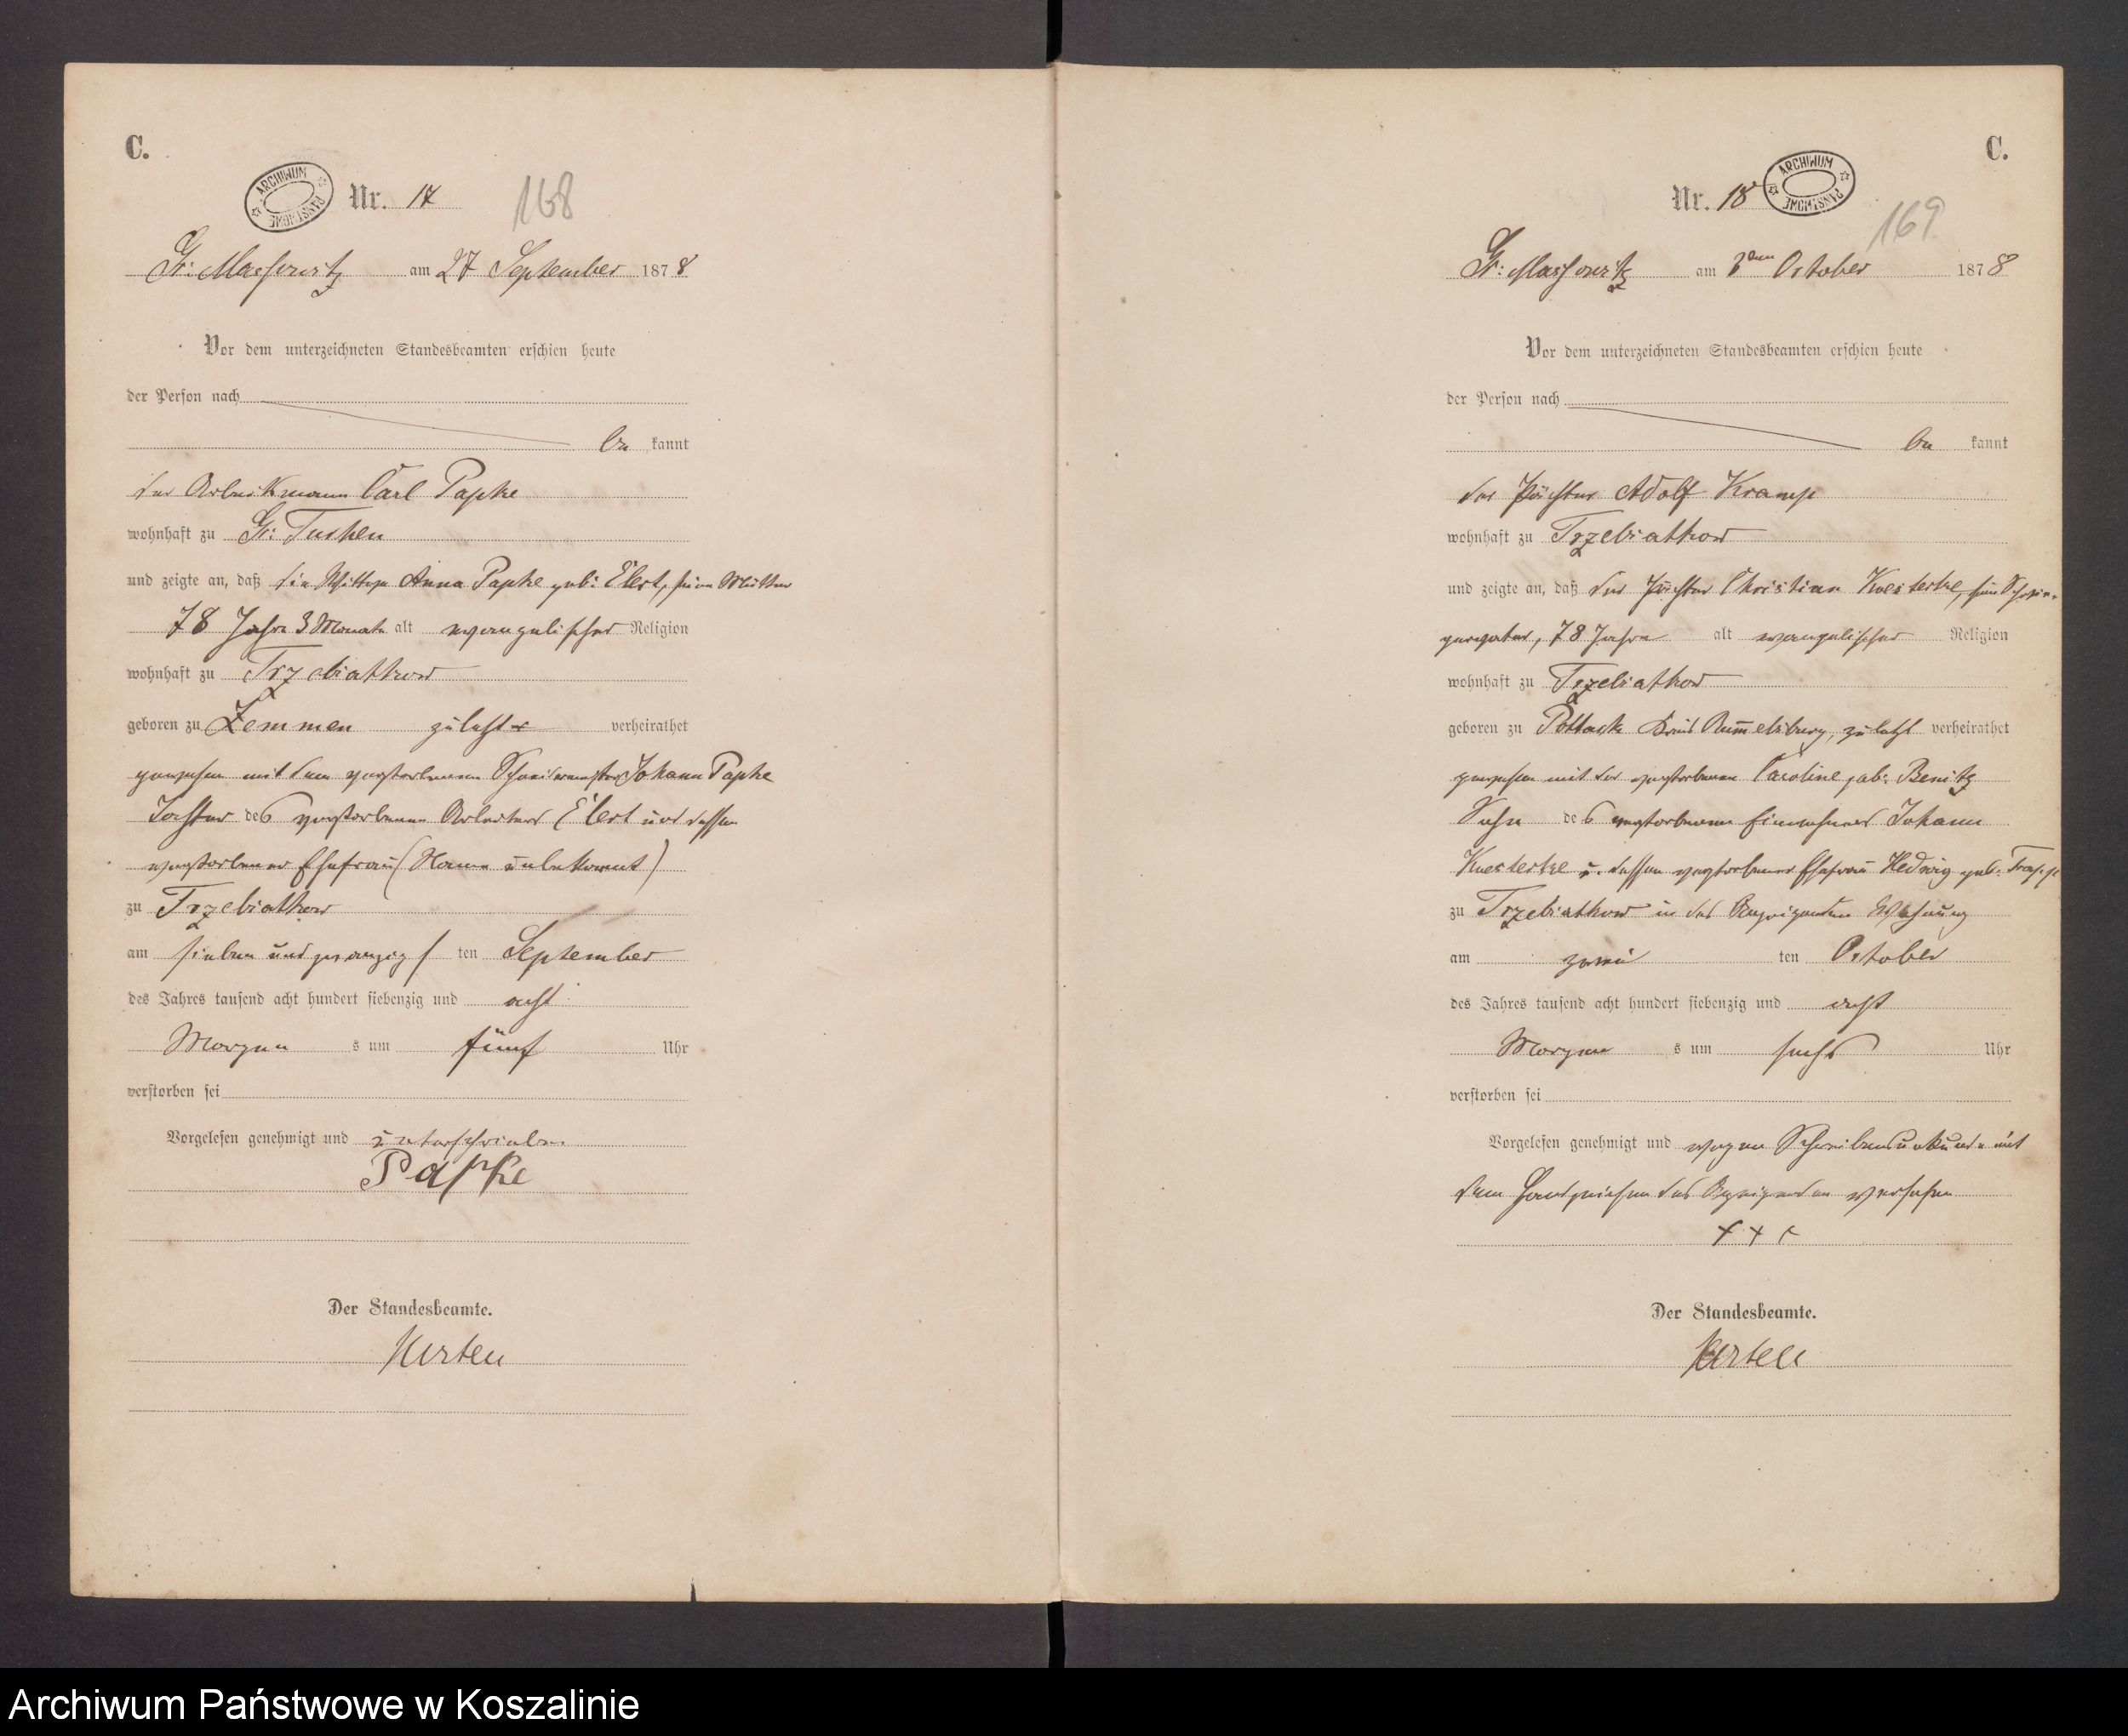 C.
ARCHIWUM PAŃSTWOWE
Nr. 17
168
Gr: Massowitz am 27 September 1878
Vor dem unterzeichneten Standesbeamten erschien heute
der Person nach
be kannt
der Arbeitsmann Carl Papke
wohnhaft zu Gr: Tuchen
und zeigte an, daß die Wittwe Anna Papke geb: Elert, seine Mutter
78 Jahre 3 Monate alt evangelischer Religion
wohnhaft zu Trzebiatkow
geboren zu Zemmen zuletzt verheirathet
gewesen mit dem verstorbenen Johann Papke
Tochter des verstorbenen Arbeiters Elert und dessen
verstorbener Ehefrau (Name unbekannt)
zu Trzebiatkow
am sieben und zwanzigs ten September
des Jahres tausend acht hundert siebenzig und acht
Morgen s um fünf Uhr
verstorben sei
Vorgelesen genehmigt und unterschrieben
Papke
Der Standesbeamte.
C.
Nr. 18
ARCHIWUM PAŃSTWOWE
169
Gr: Massowitz am October 1878
Vor dem unterzeichneten Standesbeamten erschien heute
der Person nach
be kannt
der Pächter Adolf Kramp
wohnhaft zu Trzebiatkow
und zeigte an, daß der Pächter Christian Kuesterke, sein Schwie-
gervater, 78 Jahre alt evangelischer Religion
wohnhaft zu Trzebiatkow
geboren zu Kreis Rummelsburg, zuletzt verheirathet
gewesen mit der verstorbenen Caroline geb: Benitz
Sohn des verstorbenen Einwohners Johann
Kuesterke u. dessen verstorbener Ehefrau Hedwig geb:
zu Trzebiatkow in des Anzeigenden Wohnung
am zwei ten October
des Jahres tausend acht hundert siebenzig und acht
Morgen s um sechs Uhr
verstorben sei
Vorgelesen genehmigt und wegen Schreibensunkunde mit
dem Handzeichen des Anzeigenden versehen
+ + +
Der Standesbeamte.
Archiwum Państwowe w Koszalinie